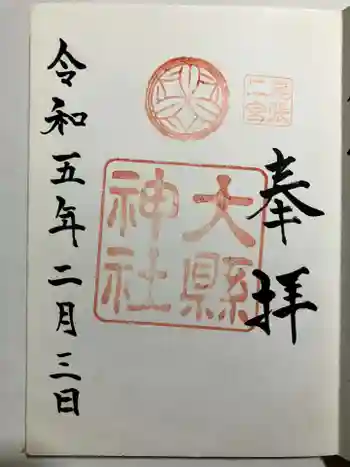 奉拝
尾張
二宮
大縣
神社
令和五年二月三日